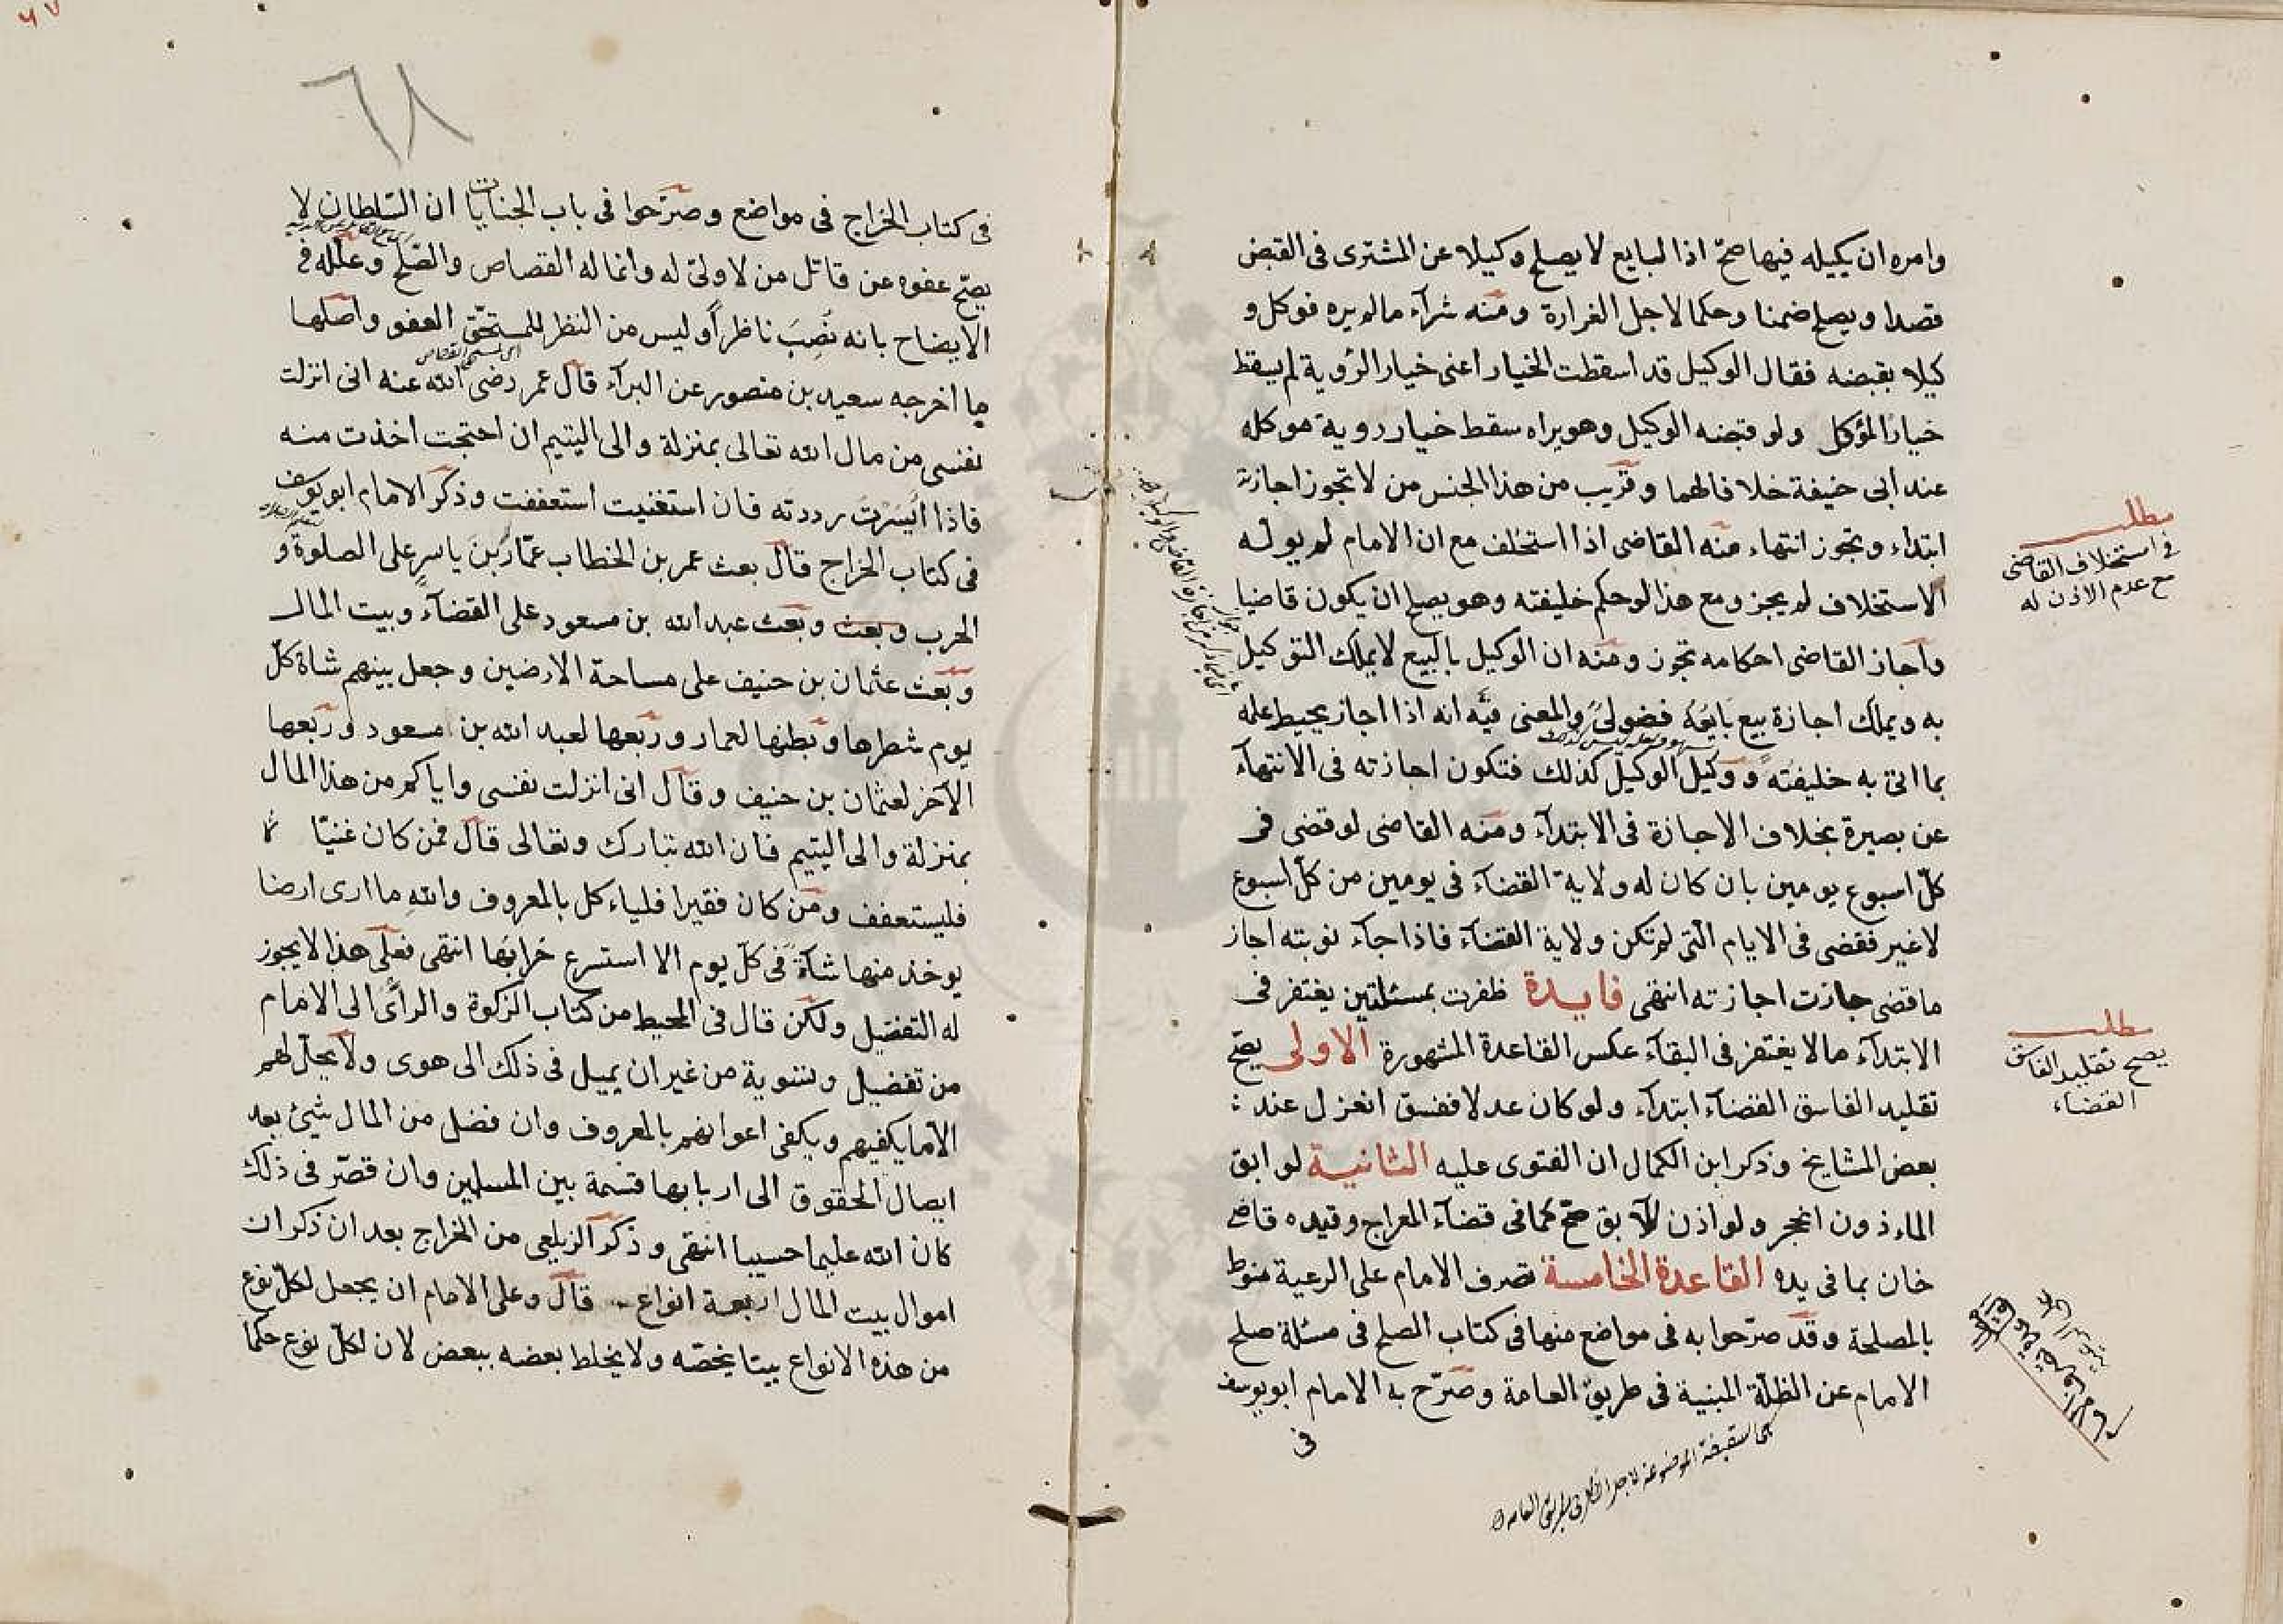 وامره ان يكيله فيها صح اذا لبايع لا يصلح وكيلا عن المشترى فى القبض
قصدا ويصلح ضمنا وحكما لاجل الغرارة ومنه شرآء مالم يره فوكل و
كيلا بقبضه فقال الوكيل قد اسقطت الخيار اعنى خيار الرؤية لم يسقط
خيار المؤكل ولو قبضه الوكيل وهو يراه سقط خيار روية موكله
عند ابى حنيفة خلافا لهما وقريب من هذا الجنس من لا تجوز اجازته
ابتداء وتجوز انتهاء منه القاضى اذا استخلف مع ان الامام لم يول له
الاستخلاف لم يجز ومع هذا لو حكم خليفته وهو يصلح ان يكون قاضيا
واجاز القاضى احكامه تجوز ومنه ان الوكيل بالبيع لا يملك التوكيل
به ويملك اجازة بيع بايعه فضولى والمعنى فيه انه اذا اجاز يحيط علمه
بما اتى به خليفته ووكيل الوكيل كذلك فتكون اجازته فى الانتهآء
عن بصيرة بخلاف الاجازة فى الابتدآء ومنه القاضى لو قضى فى
كل اسبوع يومين بان كان له ولاية القضآء فى يومين من كل اسبوع
لا غير فقضى فى الايام التى لم تكن ولاية القضآء فاذا جآء نوبته اجاز
ما قضى جازت اجازته انتهى فايدة ظفرت بمسئلتين يغتفر فى
الابتدآء مالا يغتفر فى البقآء عكس القاعدة المشهورة الاولى يصح
تقليد الفاسق القضآء ابتدآء ولو كان عدلا ففسق انعزل عند
بعض المشايخ وذكر ابن الكمال ان الفتوى عليه الثانية لو ابق
الماءذون انحجر ولو اذن للآبق صح كما فى قضآء المعراج وقيده قاضى
خان بما فى يده القاعدة الخامسة تصرف الامام على الرعية منوط
بالمصلحة وقد صرحوا به فى مواضع منها فى كتاب الصلح فى مسئلة صلح
الامام عن الظلة المبنية فى طريق العامة وصرح به الامام ابويوسف
فى
مطلب
فى استخلاف القاضى
مع عدم الاذن له
مطلب
يصح تقليد الفاسق
القضاء
٦٨
فى كتاب الخراج فى مواضع وصرحوا فى باب الجنايات ان السلطان لا
يصح عفوه عن قاتل من لا ولى له وانما له القصاص والصلح وعلله فى
الايضاح بانه نصب ناظرا وليس من النظر للمستحق العفو واصلها
ما اخرجه سعيد بن منصور عن البرآء قال عمر رضى الله عنه انى انزلت
نفسى من مال الله تعالى بمنزلة والى اليتيم ان احتجت اخذت منه
فاذا ايسرت رددته فان استغنيت استعففت وذكر الامام ابويوسف
فى كتاب الخراج قال بعث عمر بن الخطاب عمار بن ياسر على الصلوة و
الحرب وبعث وبعث عبد الله بن مسعود على القضآء وبيت المال
وبعث عثمان بن حنيف على مساحة الارضين وجعل بينهم شاة كل
يوم شطرها وبطنها لعمار وربعها لعبد الله بن مسعود وربعها
الآخر لعثمان بن حنيف وقال انى انزلت نفسى واياكم من هذا المال
بمنزلة والى اليتيم فان الله تبارك وتعالى قال فمن كان غنيّا
فليستعفف ومن كان فقيرا فلياءكل بالمعروف والله ما ارى ارضا
يوخذ منها شاة فى كل يوم الا استسرع خرابها انتهى فعلى هذا لا يجوز
له التفضيل ولكن قال فى المحيط من كتاب الزكوة والرأى الى الامام
من تفضيل وتسوية من غير ان يميل فى ذلك الى هوى ولا يحل لهم
الا ما يكفيهم ويكفى اعوانهم بالمعروف وان فضل من المال شيئ بعد
ايصال الحقوق الى اربابها قسمة بين المسلمين وان قصر فى ذلك
كان الله عليما حسيبا انتهى وذكر الزيلعى من الخراج بعد ان ذكر ان
اموال بيت المال اربعة انواع قال وعلى الامام ان يجعل لكل نوع
من هذه الانواع بيتا يخصه ولا يخلط بعضه ببعض لان لكل نوع حكما